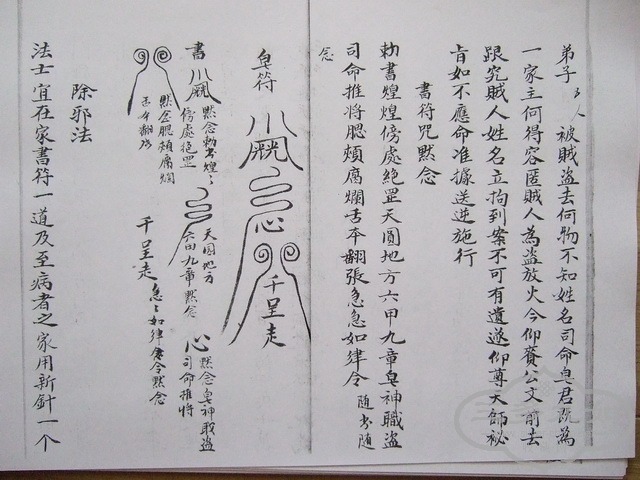 弟子 厶人 被賊盗去何物不知姓名司命皂君既為
一家主何得容匿賊人為盗放火今仰賫公文前去
跟究賊人姓名立拘到案不可有遺遂仰尊天師祕
旨如不應命准據送逆施行
書符咒默念
勅書煌煌傍處絶罡天圓地方六甲九章皂神職盗
司命推將腮頰腐爛舌本翻張急急如律令 随書随
念
皂符
心
千里走
書
默念勅書煌煌
傍處絶罡
天圓地方
六甲九章默念
心
默念皂神職盗
司命推将
默念腮頰腐爛
舌本翻張
千里走
急急如律令默念
除邪法
法士宜在家書符一道及至病者之家用新針一个